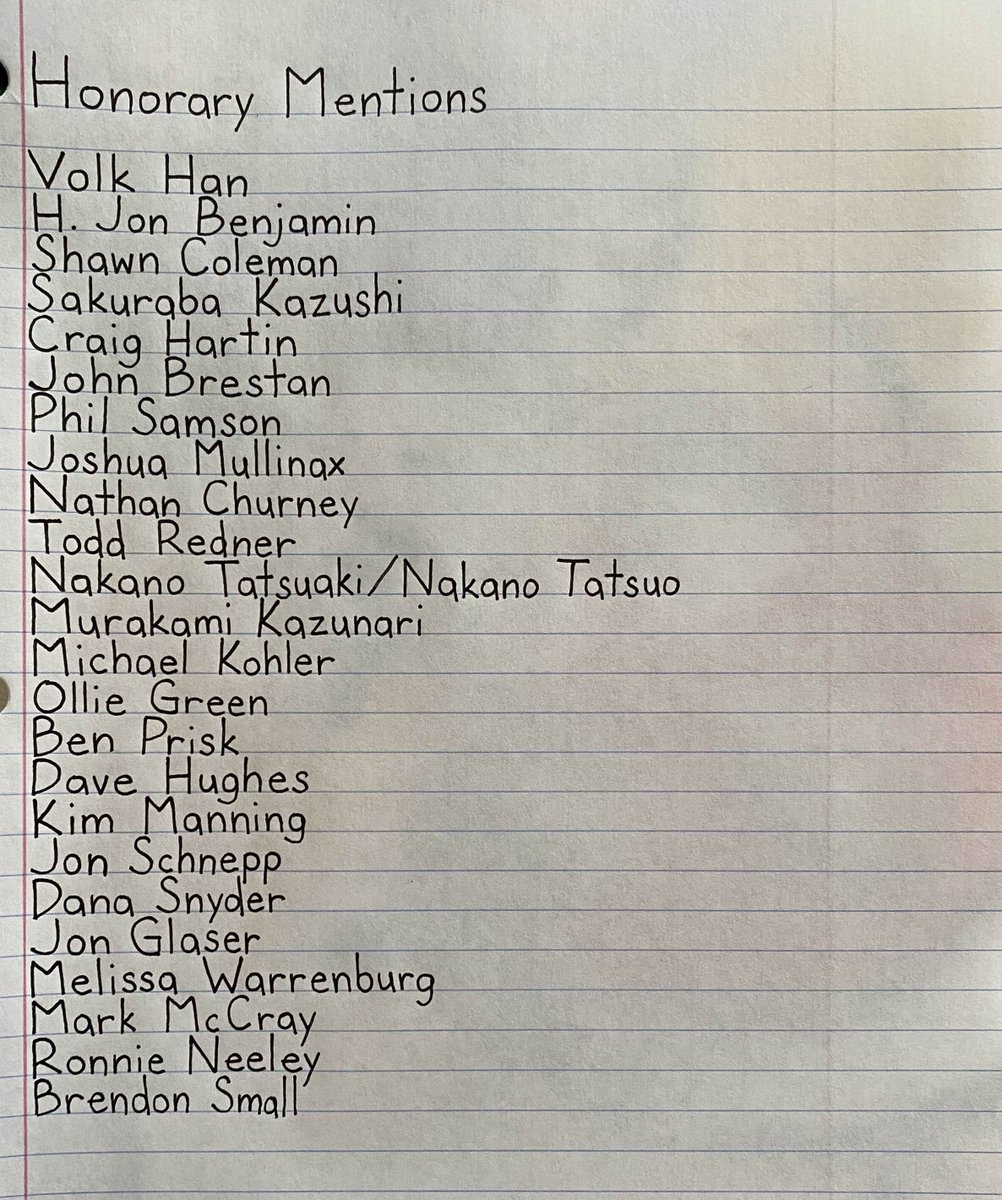 Honorary Mentions
Volk Han
H. Jon Benjamin
Shawn Coleman
Sakuraba Kazushi
Craig Hartin
John Brestan
Phil Samson
Joshua Mullinax
Nathan Churney
Todd Redner
Nakano Tatsuaki/Nakano Tatsuo
Murakami Kazunari
Michael Kohler
Ollie Green
Ben Prisk
Dave Hughes
Kim Manning
Jon Schnepp
Dana Snyder
Jon Glaser
Melissa Warrenburg
Mark McCray
Ronnie Neeley
Brendon Small